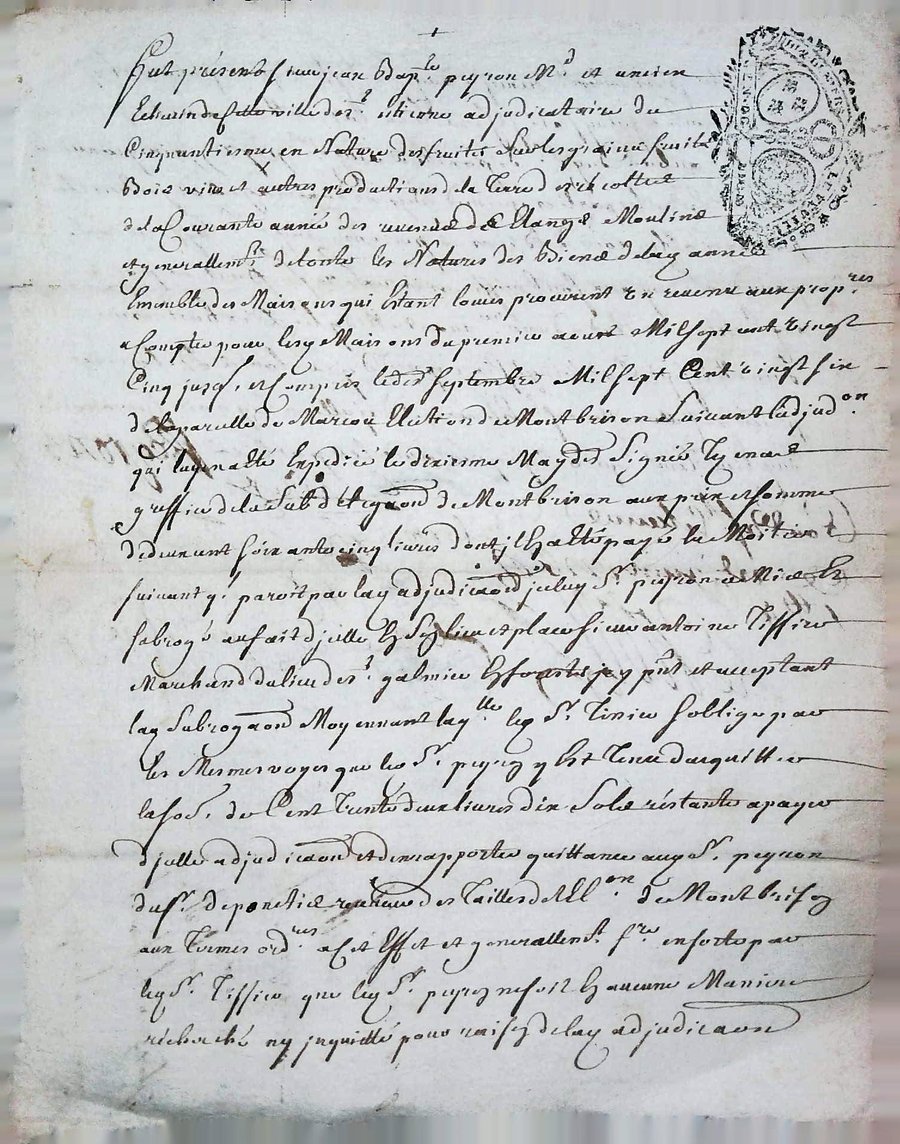 Fut présent sieur jean Bapte peyron Md et ancien
Echevin de cette ville de St etienne adjudicataire du
Cinquantiesme en Nature des fruits sur les grains fruits
Bois vins et autres productions de la Terre de st recoltes
de la Courante année des revenues des Etangs Moulins
et generallemt de toute les Natures des Biens de lad année
Ensemble des Maisons qui Etant louées prouvent un revenu aux propres
a Compter pour lesd Maisons du premier aoust Mil sept cent vingt
Cinq jusq. et Compris le der septembre Mil sept Cent vingt six
de la parcelle de Marcou Election de Montbrison suivant ladjudon
qui luy en a Eté Expedié le dixiesme May der Signée
greffier de la Subdélégaon de Montbrison au prix et somme
de deux cent soixante cinq livres dont jl En a Eté payé la Moitié
suivant q. paroit par lad adjudicaon jceluy Sr peyron a Mis Et
subrogé au fait djcelle En Son lieu et place sieur antoine Tissier
Marchand du lieu de St galmier En forests jcy pnt et acceptant
lad Subrogaon Moyennant laqlle led Sr. Tissier soblige par
les Mesmes voyes que led Sr. peyron y Est Tenu dacquitter
la so. de Cent Trente deux livres dix Sols réstante a payer
djcelle adjudicaon et den rapporter quittance aud Sr. peyron
du Sr. receveur des Tailles de lElon de Montbrison
aux Termes ordres a Cet Effet et generallemt fre en sorte par
led Sr. Tissier que led Sr. peyron ne soit En aucune Maniere
récherché ny jnquiété pour raison de lad adjudicaon